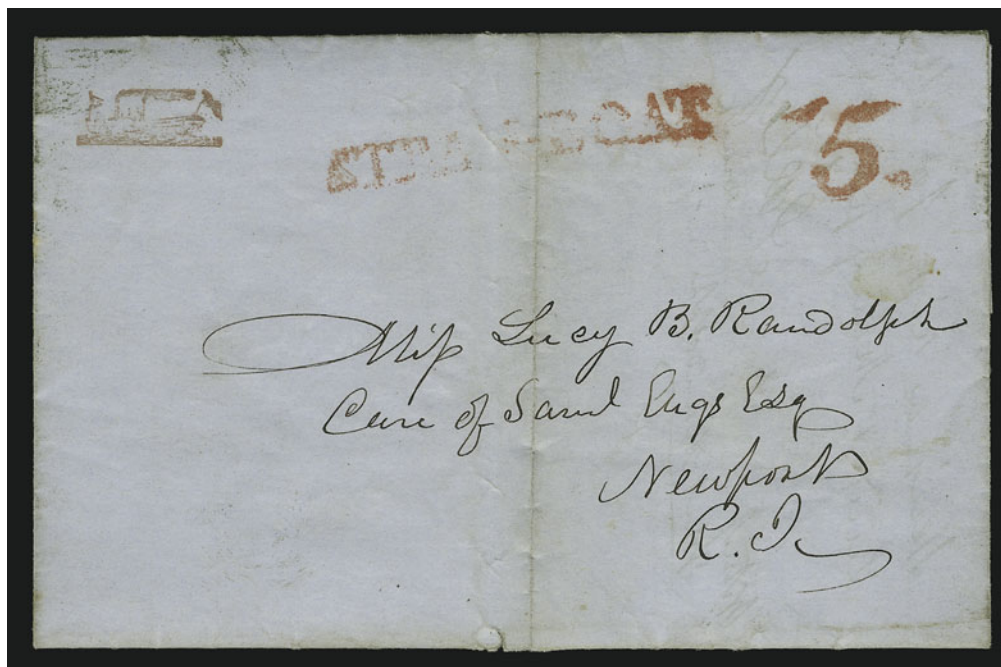 STEAMBOAT
5.
Miss Lucy B. Randolph
Care of Saml Engs Esq
Newport
R. I.